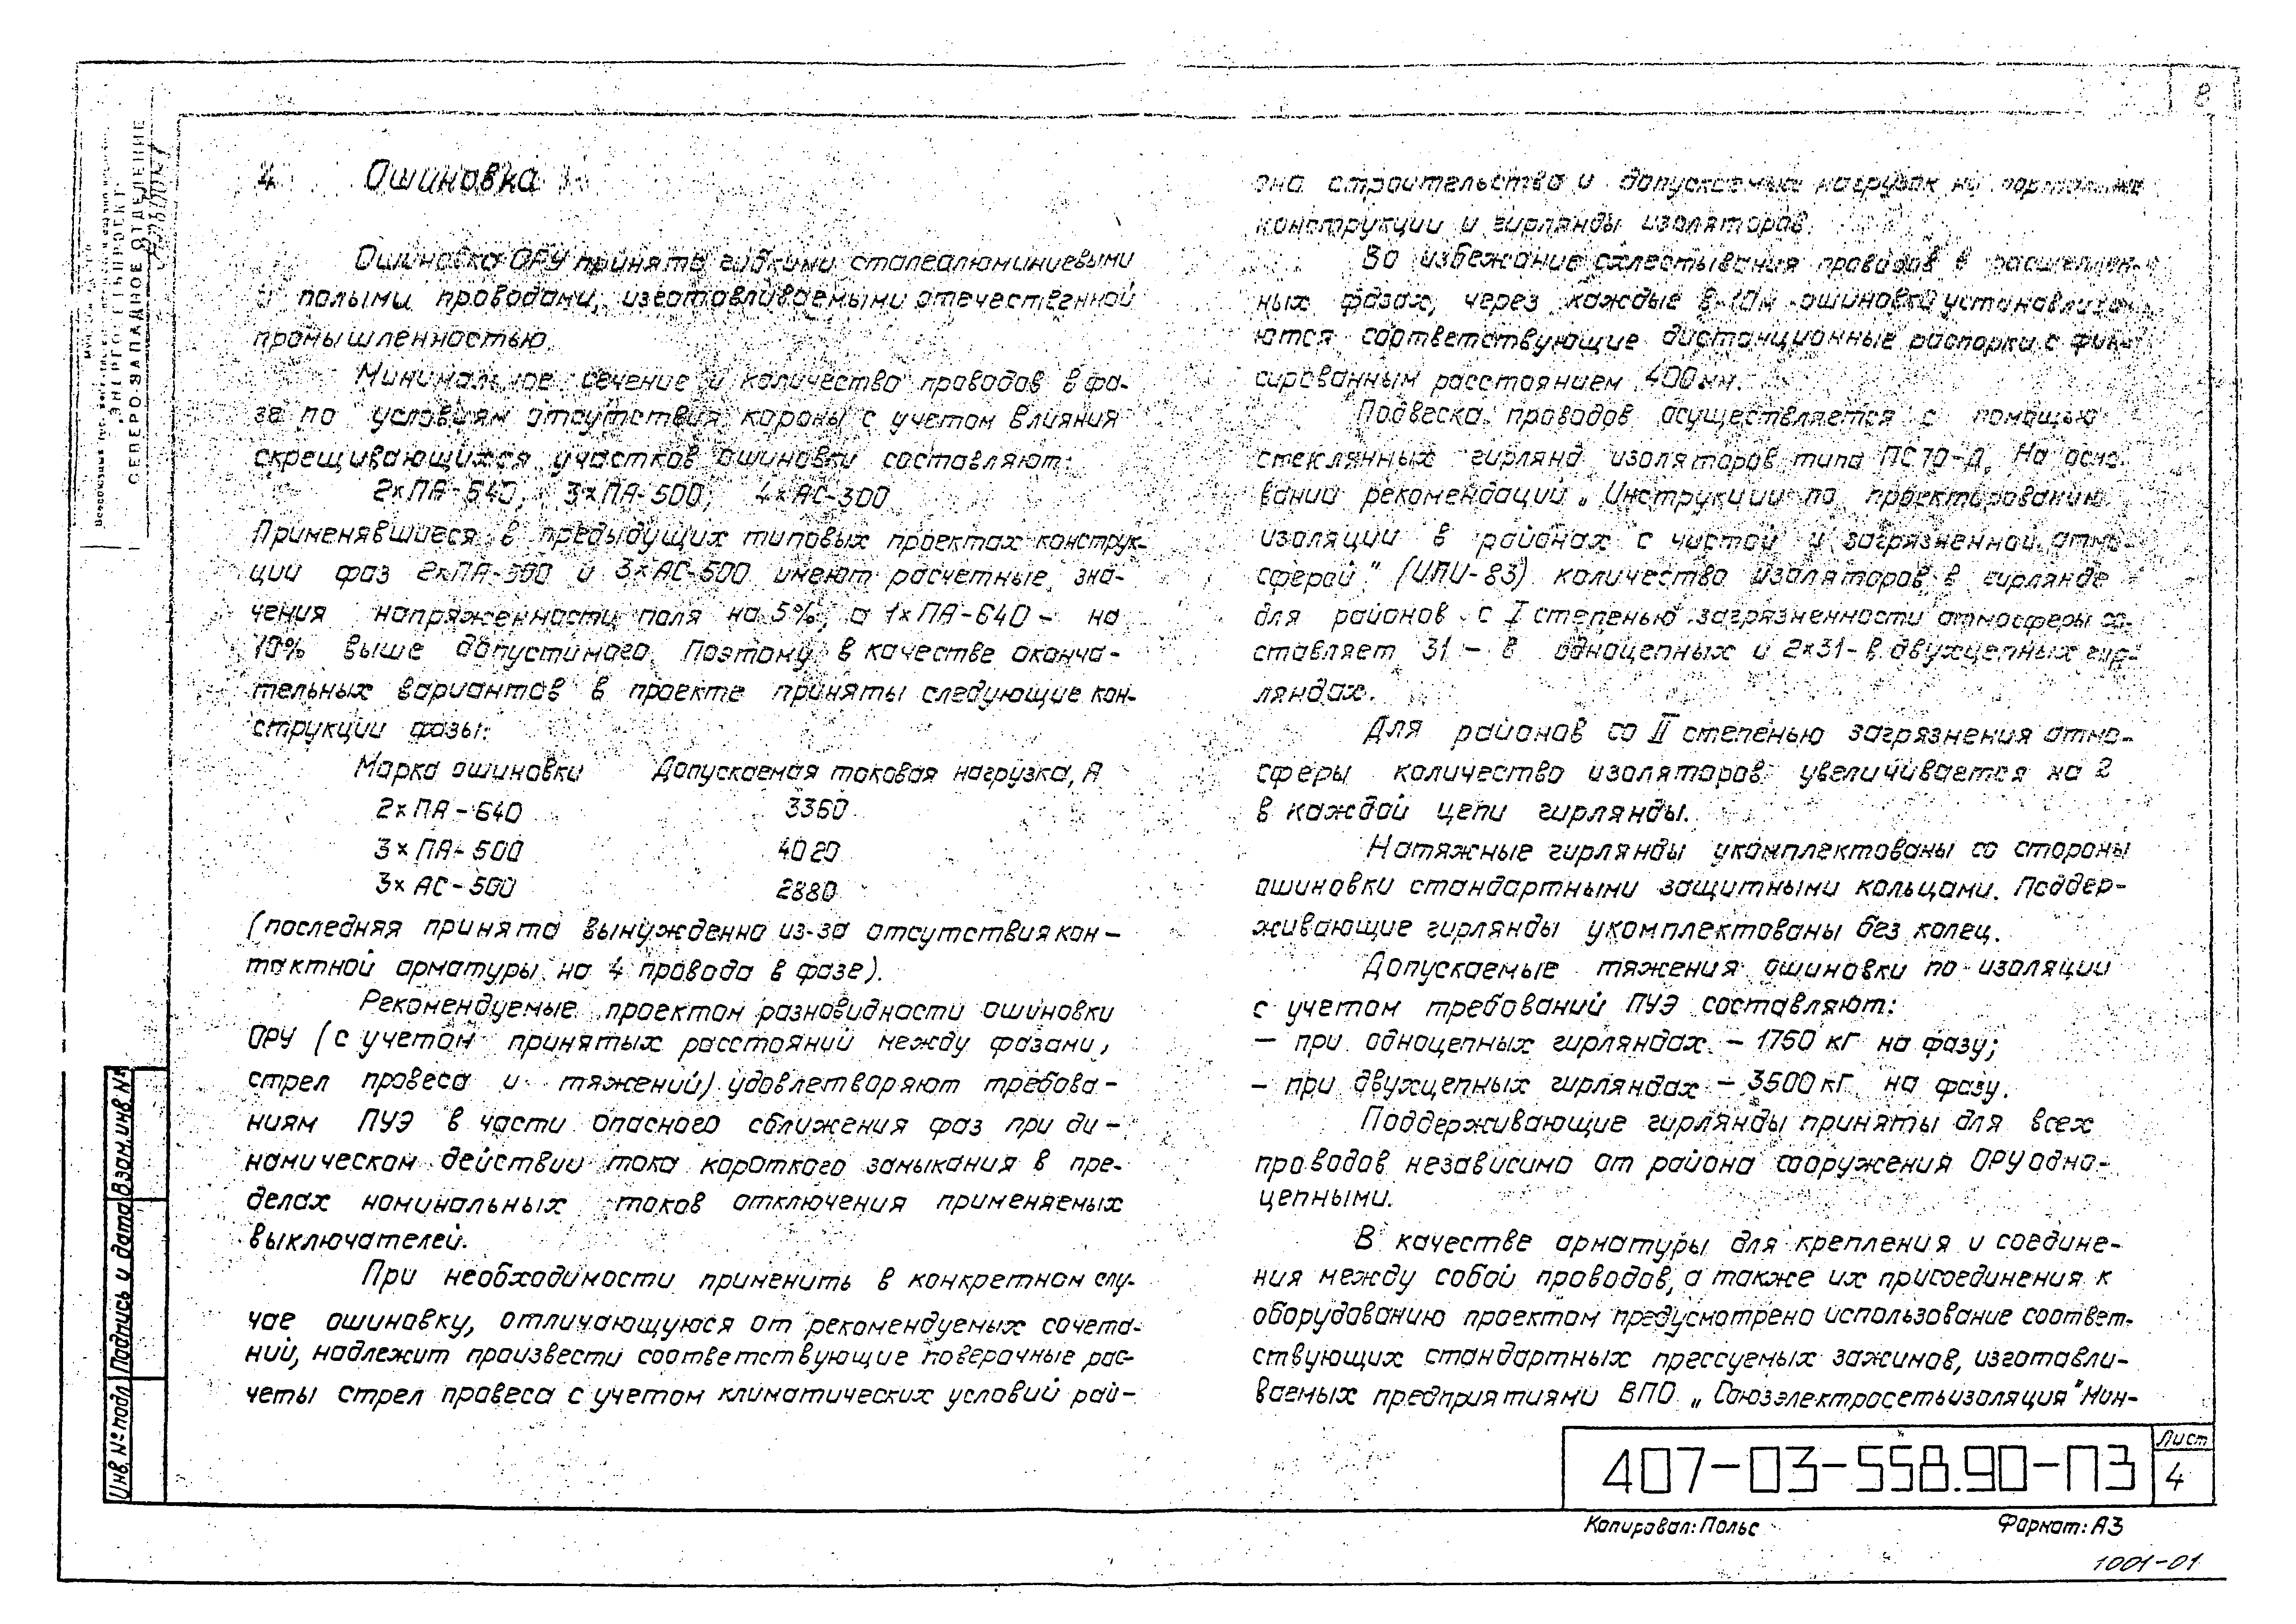 8
4 Ошиновка
Ошиновка ОРУ принята гибкими сталеалюминиевыми
и полыми проводами, изготавливаемыми отечественной
промышленностью.
Минимальное сечение и количество проводов в фа-
зе по условиям отсутствия короны с учетом влияния
скрещивающихся участков ошиновки составляют:
2×ПА-640, 3×ПА-500, 4×АС-300
Применявшиеся в предыдущих типовых проектах конструк-
ции фаз 2×ПА-500 и 3×АС-500 имеют расчетные зна-
чения напряженности поля на 5%, а 1×ПА-640 - на
10% выше допустимого. Поэтому в качестве оконча-
тельных вариантов в проекте приняты следующие кон-
струкции фазы:
Марка ошиновки Допускаемая токовая нагрузка, А
2×ПА-640 3360
3×ПА-500 4020
3×АС-500 2880
(последняя принята вынужденно из-за отсутствия кон-
тактной арматуры на 4 провода в фазе).
Рекомендуемые проектом разновидности ошиновки
ОРУ (с учетом принятых расстояний между фазами,
стрел провеса и тяжений) удовлетворяют требова-
ниям ПУЭ в части опасного сближения фаз при ди-
намическом действии тока короткого замыкания в пре-
делах номинальных токов отключения применяемых
выключателей.
При необходимости применить в конкретном слу-
чае ошиновку, отличающуюся от рекомендуемых сочета-
ний, надлежит произвести соответствующие поверочные рас-
четы стрел провеса с учетом климатических условий рай-
она строительства и допускаемых нагрузок на портальные
конструкции и гирлянды изоляторов.
Во избежание схлестывания проводов в расщеплен-
ных фазах, через каждые 8-10м ошиновки устанавлива-
ются соответствующие дистанционные распорки с фик-
сированным расстоянием 400мм.
Подвеска проводов осуществляется с помощью
стеклянных гирлянд изоляторов типа ПС70-Д. На осно-
вании рекомендаций „Инструкции по проектированию
изоляции в районах с чистой и загрязненной атмо-
сферой" (ИПИ-83) количество изоляторов в гирлянде
для районов с I степенью загрязненности атмосферы со-
ставляет 31 - в одноцепных и 2×31 - в двухцепных гир-
ляндах.
Для районов со II степенью загрязнения атмо-
сферы количество изоляторов увеличивается на 2
в каждой цепи гирлянды.
Натяжные гирлянды укомплектованы со стороны
ошиновки стандартными защитными кольцами. Поддер-
живающие гирлянды укомплектованы без колец.
Допускаемые тяжения ошиновки по изоляции
с учетом требований ПУЭ составляют:
— при одноцепных гирляндах - 1750 кг на фазу;
- при двухцепных гирляндах - 3500 кг на фазу.
Поддерживающие гирлянды приняты для всех
проводов независимо от района сооружения ОРУ одно-
цепными.
В качестве арматуры для крепления и соедине-
ния между собой проводов, а также их присоединения к
оборудованию проектом предусмотрено использование соответ-
ствующих стандартных прессуемых зажимов, изготавли-
ваемых предприятиями ВПО „Союзэлектросетьизоляция" Мин-
„ЭНЕРГОСЕТЬПРОЕКТ"
СЕВЕРО-ЗАПАДНОЕ ОТДЕЛЕНИЕ
Взам. инв №
Подпись и дата
Инв. № подл
407-03-558.90-ПЗ
Лист
4
Копировал: Польс
Формат: А3
1001-01